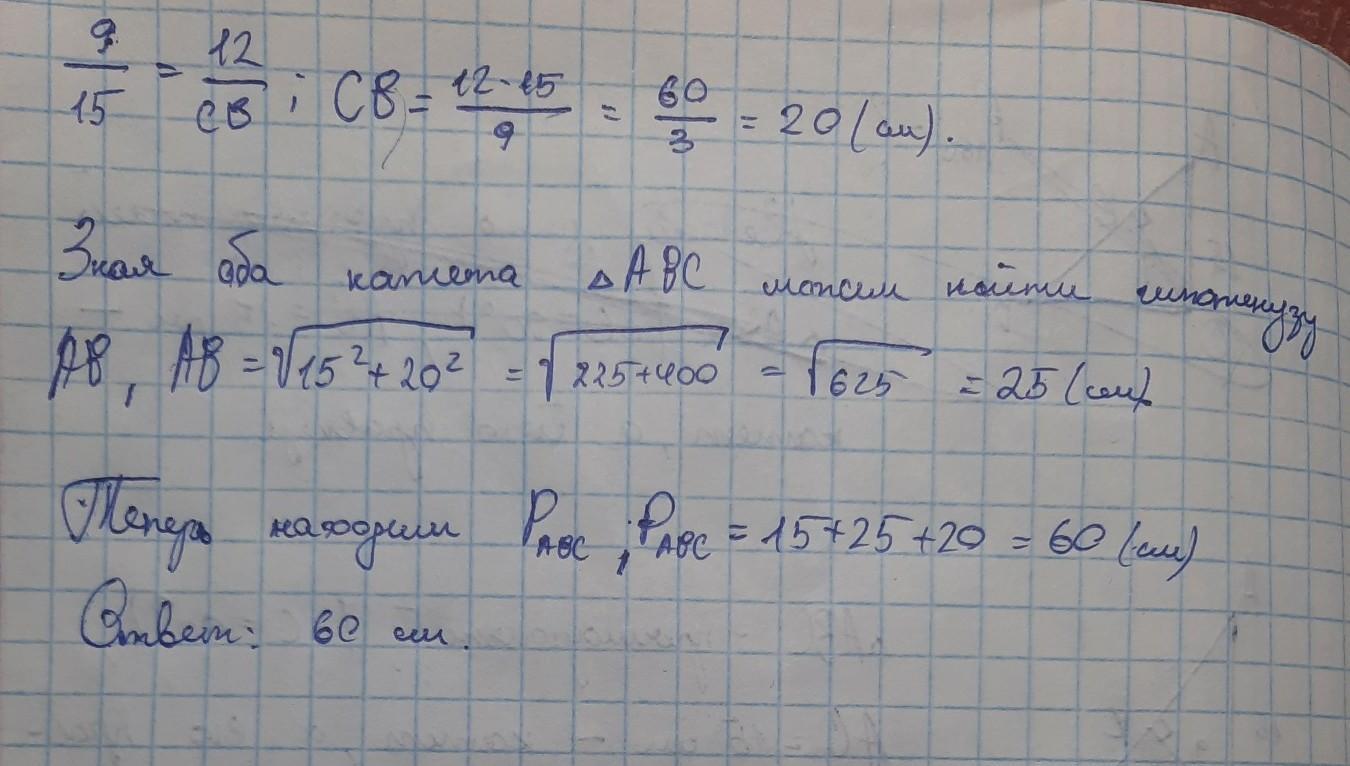 9/15 = 12/CB ; CB = 12·15/9 = 60/3 = 20 (см).
Зная оба катета △ABC можем найти гипотенузу
AB, AB = √15²+20² = √225+400 = √625 = 25 (см).
Теперь находим P ABC ; P ABC = 15+25+20 = 60 (см)
Ответ: 60 см.